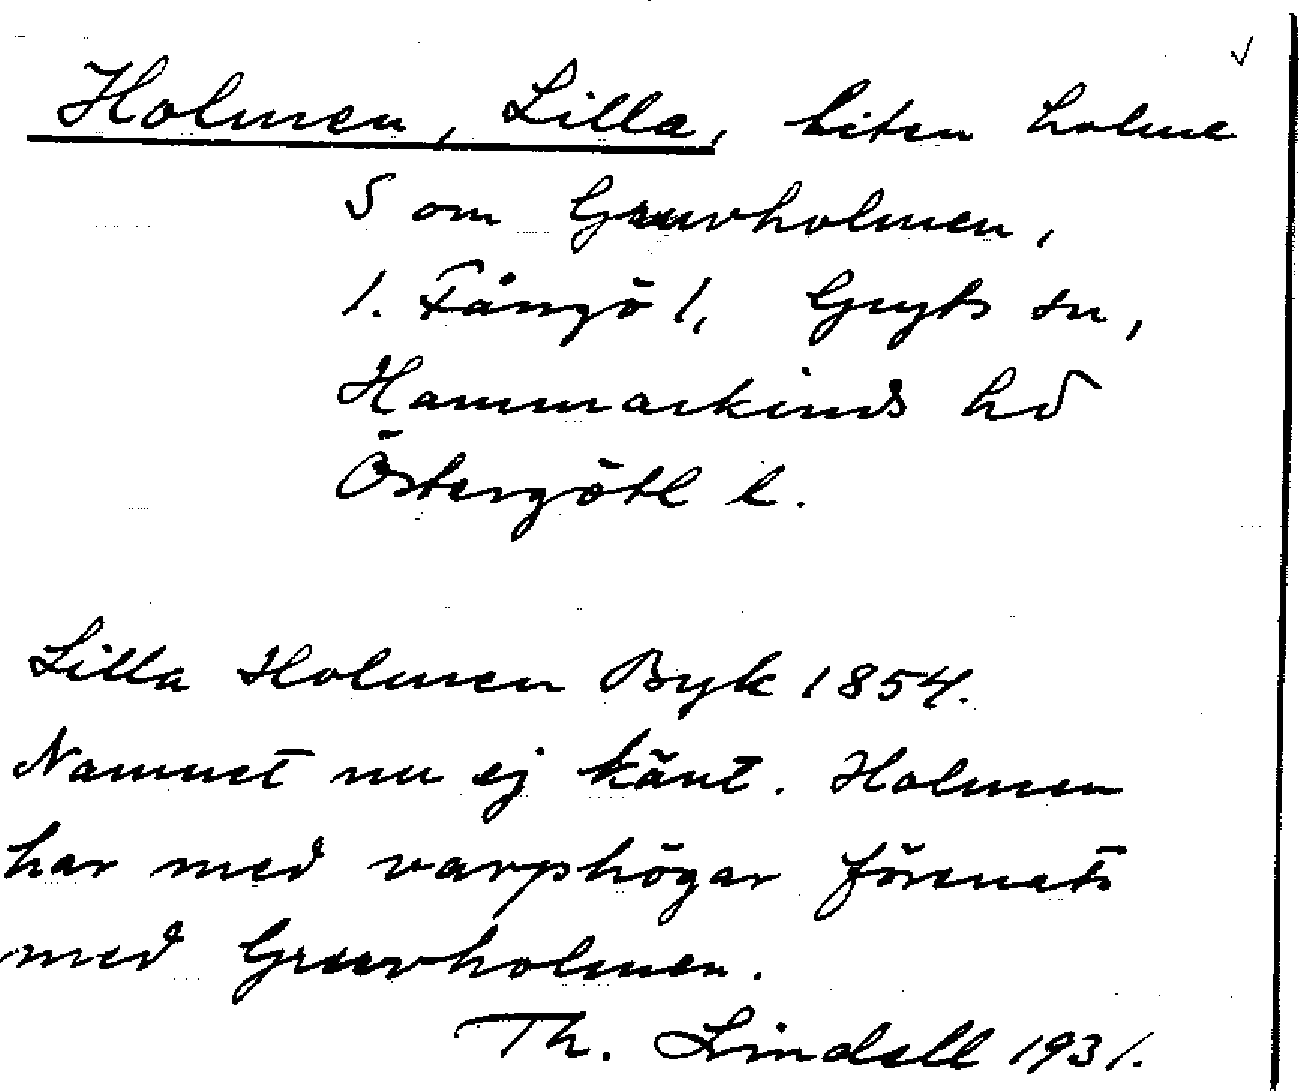 Holmen, Lilla, liten holme
S om Gruvholmen,
1. Fångö 1, Gryts sn,
Hammarkinds hd
Östergötl l.
Lilla Holmen Byk 1854.
Namnet nu ej känt. Holmen
har med varphögar förenats
med Gruvholmen.
Th. Lindell 1931.